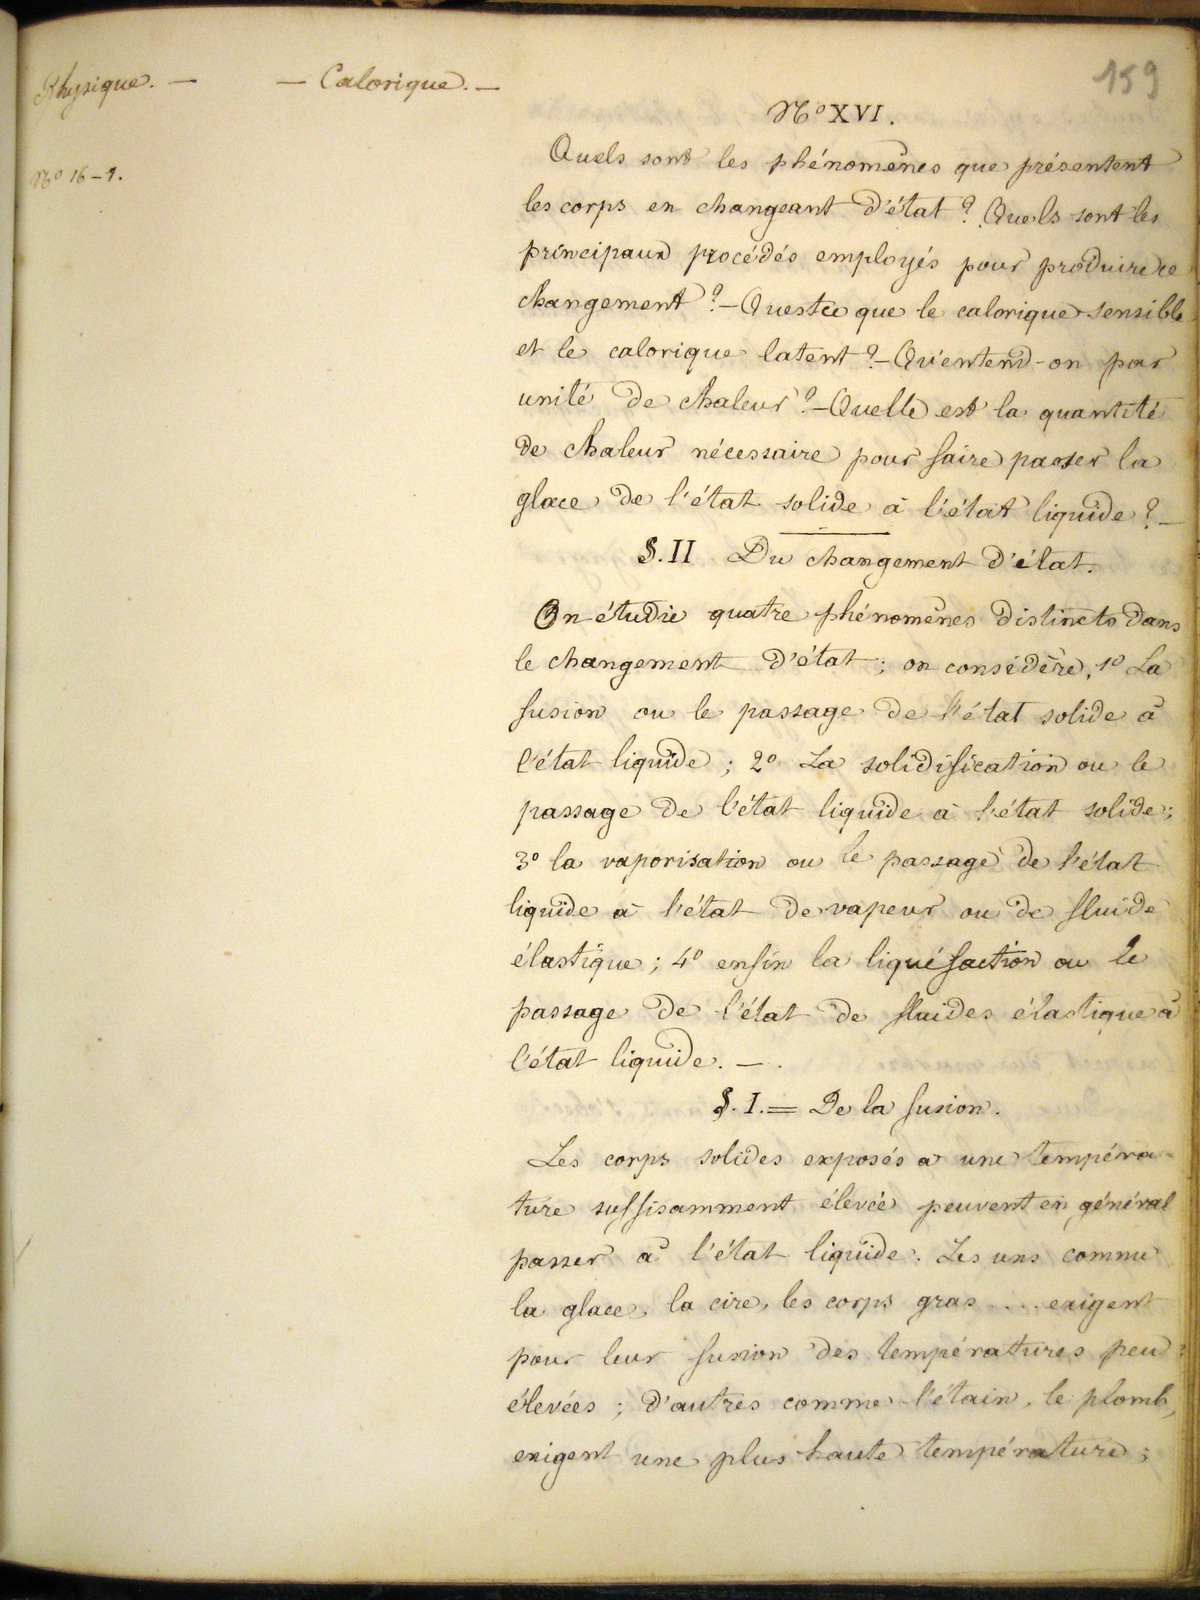 Physique. — — Calorique. —
159
N° 16-1.
N° XVI.
Quels sont les phénomènes que présentent
les corps en changeant d'état ? Quels sont les
principaux procédés employés pour produire ce
changement ? — Questce que le calorique sensible
et le calorique latent ? — Qu'entend-on par
unité de chaleur ? — Quelle est la quantité
de chaleur nécessaire pour faire passer la
glace de l'état solide à l'état liquide ? —
§. II Du changement d'état.
On étudie quatre phénomènes distincts dans
le changement d'état ; on considère, 1° La
fusion ou le passage de l'état solide à
l'état liquide ; 2° La solidification ou le
passage de l'état liquide à l'état solide ;
3° la vaporisation ou le passage de l'état
liquide à l'état de vapeur ou de fluide
élastique ; 4° enfin la liquéfaction ou le
passage de l'état de fluides élastique à
l'état liquide. — .
§. I. = De la fusion.
Les corps solides exposés à une tempéra-
ture suffisamment élevée peuvent en général
passer à l'état liquide. Les uns comme
la glace, la cire, les corps gras .... exigent
pour leur fusion des températures peu
élevées ; d'autres comme l'étain, le plomb,
exigent une plus haute température ;